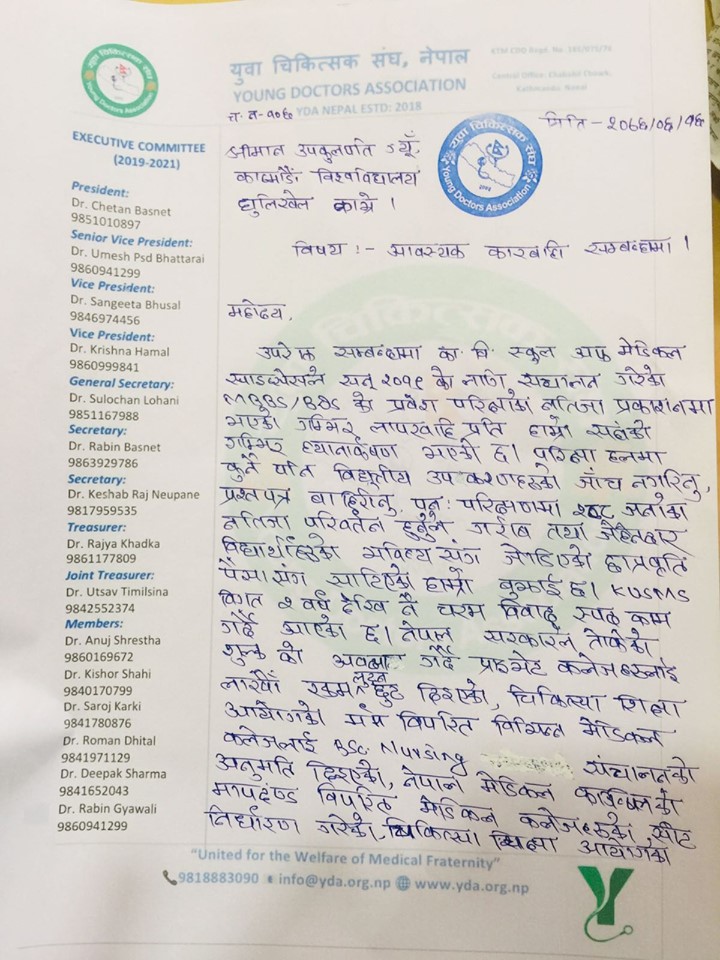 युवा चिकित्सक संघ, नेपाल
YOUNG DOCTORS ASSOCIATION
YDA NEPAL ESTD: 2018
KTM CDO Regd. No.
Central Office: Chakupat Chowk,
Kathmandu, Nepal
युवा चिकित्सक संघ
Young Doctors Association
च. न - १०६
मिति - २०७६/०६/१६
EXECUTIVE COMMITTEE
(2019-2021)
President:
Dr. Chetan Basnet
9851010897
Senior Vice President:
Dr. Umesh Psd Bhattarai
9860941299
Vice President:
Dr. Sangeeta Bhusal
9846974456
Vice President:
Dr. Krishna Hamal
9860999841
General Secretary:
Dr. Sulochan Lohani
9851167988
Secretary:
Dr. Rabin Basnet
9863929786
Secretary:
Dr. Keshab Raj Neupane
9817959535
Treasurer:
Dr. Rajya Khadka
9861177809
Joint Treasurer:
Dr. Utsav Timilsina
9842552374
Members:
Dr. Anuj Shrestha
9860169672
Dr. Kishor Shahi
9840170799
Dr. Saroj Karki
9841780876
Dr. Roman Dhital
9841971129
Dr. Deepak Sharma
9841652043
Dr. Rabin Gyawali
9860941299
श्रीमान उपकुलपति ज्यूँ,
काठमाडौं विश्वविद्यालय
धुलिखेल काभ्रे ।
विषय :- आवस्यक कारबाही सम्बन्धमा ।
महोदय,
उपरोक्त सम्बन्धमा का. वि. स्कुल अफ मेडिकल
साइन्सेसले सन् २०१९ को लागि संचालन गरेको
MBBS/BDS को प्रवेश परिक्षाको नतिजा प्रकाशनमा
भएको गम्भिर लापरवाहि प्रति हाम्रो संघको
गम्भिर ध्यानाकर्षण भएको छ। परिक्षा हलमा
कुनै पनि विद्युतीय उपकरणहरुको जाँच नगरिनु,
प्रश्नपत्र बाहिरिनु, पुन: परिक्षणमा जनाको
नतिजा परिवर्तन हुनुले गरीब तथा जेहेनदार
विद्यार्थीहरुको भविष्य संग जोडिएको छात्रवृति
पैसा संग साटिएको हाम्रो बुझाई छ। KUSMS
विगत २ वर्ष देखि नै चरम विवादस्पद काम
गर्दै आएको छ। नेपाल सरकारले तोकेको
शुल्क को अवज्ञा गर्दै प्राइभेट कलेजहरुलाई
लाखौँ रकम लुट्न छुट दिएको, चिकित्सा शिक्षा
आयोगको मर्म विपरित विभिन्न मेडिकल
कलेजलाई BSc. Nursing संचालनको
अनुमति दिएको, नेपाल मेडिकल काउन्सिलको
मापदण्ड विपरित मेडिकल कलेजहरुको सीट
निर्धारण गरेको, चिकित्सा शिक्षा आयोगको
"United for the Welfare of Medical Fraternity"
9818883090 info@yda.org.np www.yda.org.np